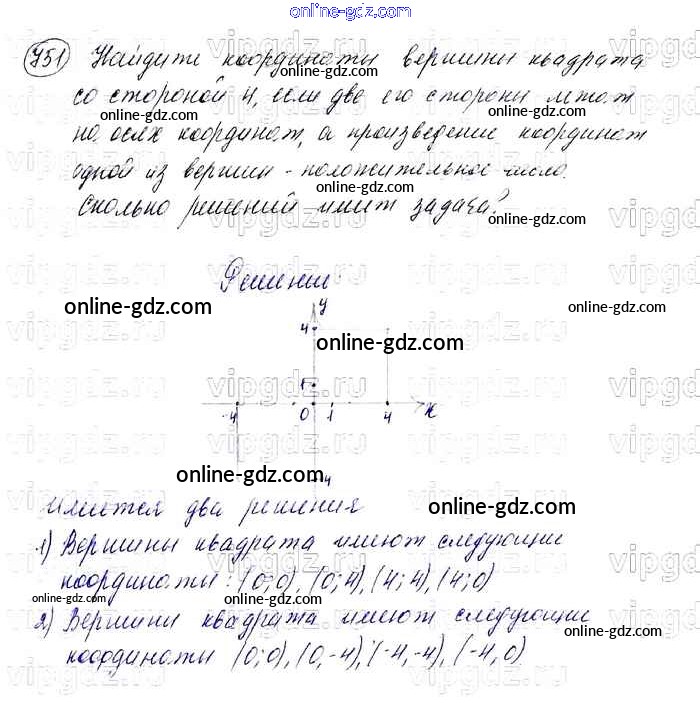 online-gdz.com
751 Найдите координаты вершины квадрата
со стороной 4, если две его стороны лежат
на осях координат, а произведение координат
одной из вершин - положительное число.
Сколько решений имеет задача?
Решение:
y
4
1
-4 0 1 4 x
-4
Имеется два решения
1) Вершины квадрата имеют следующие
координаты: (0;0), (0;4), (4;4), (4;0)
2) Вершины квадрата имеют следующие
координаты (0;0), (0,-4), (-4,-4), (-4,0)
online-gdz.com
online-gdz.com
online-gdz.com
online-gdz.com
online-gdz.com
online-gdz.com
online-gdz.com
online-gdz.com
online-gdz.com
online-gdz.com
online-gdz.com
online-gdz.com
online-gdz.com